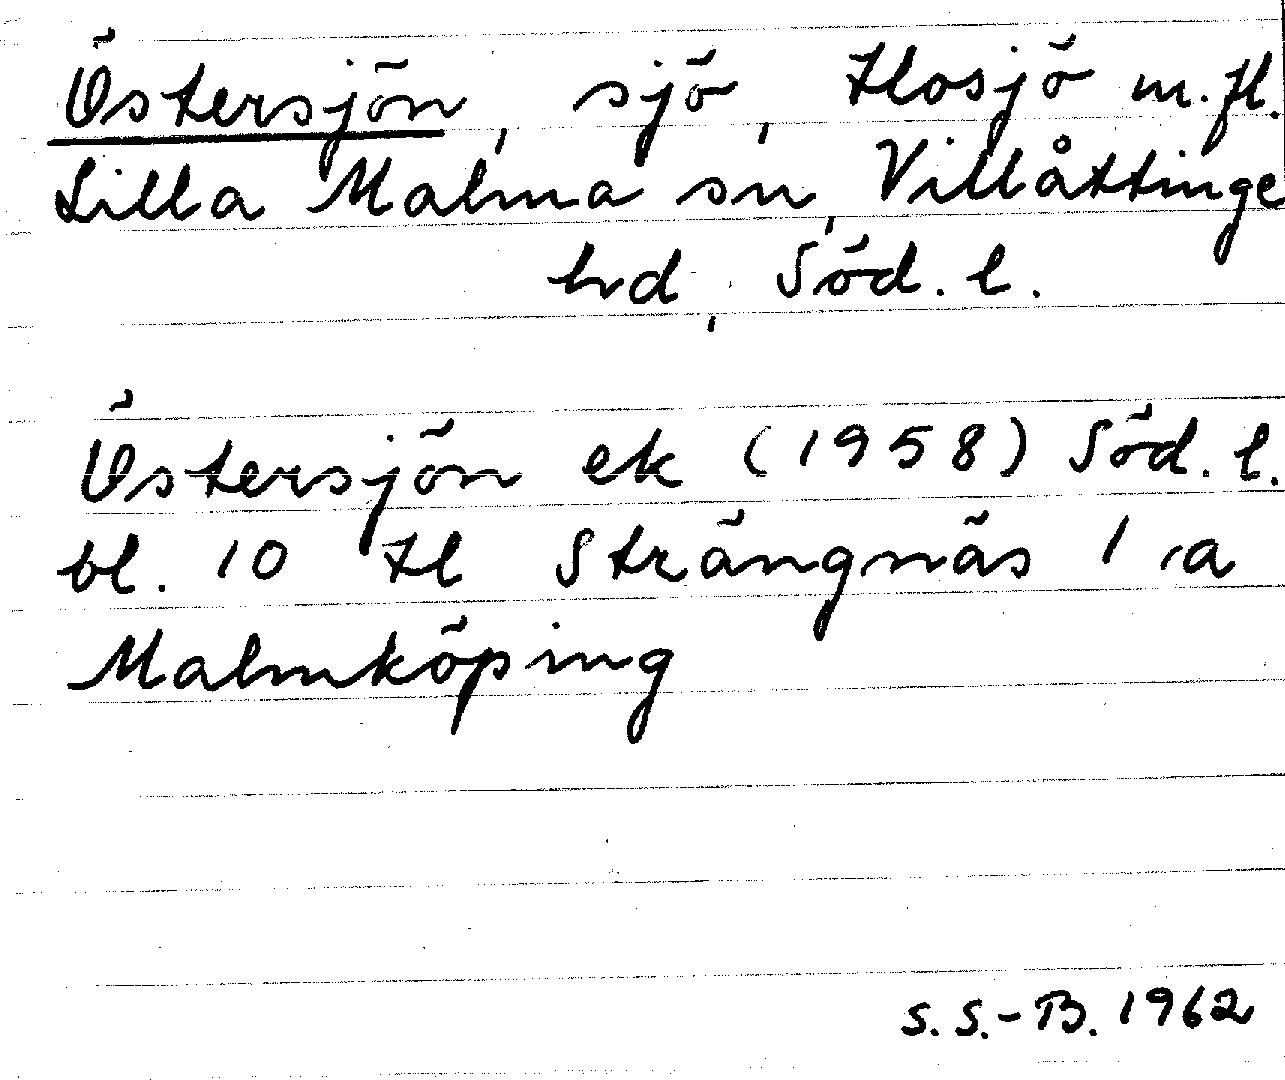 Östersjön, sjö, Hosjö m.fl.
Lilla Malma sn, Villåttinge
hd, Söd. l.
Östersjön ek (1958) Söd. l.
bl. 10 tl Strängnäs 1 a
Malmköping
S.S.-B. 1962